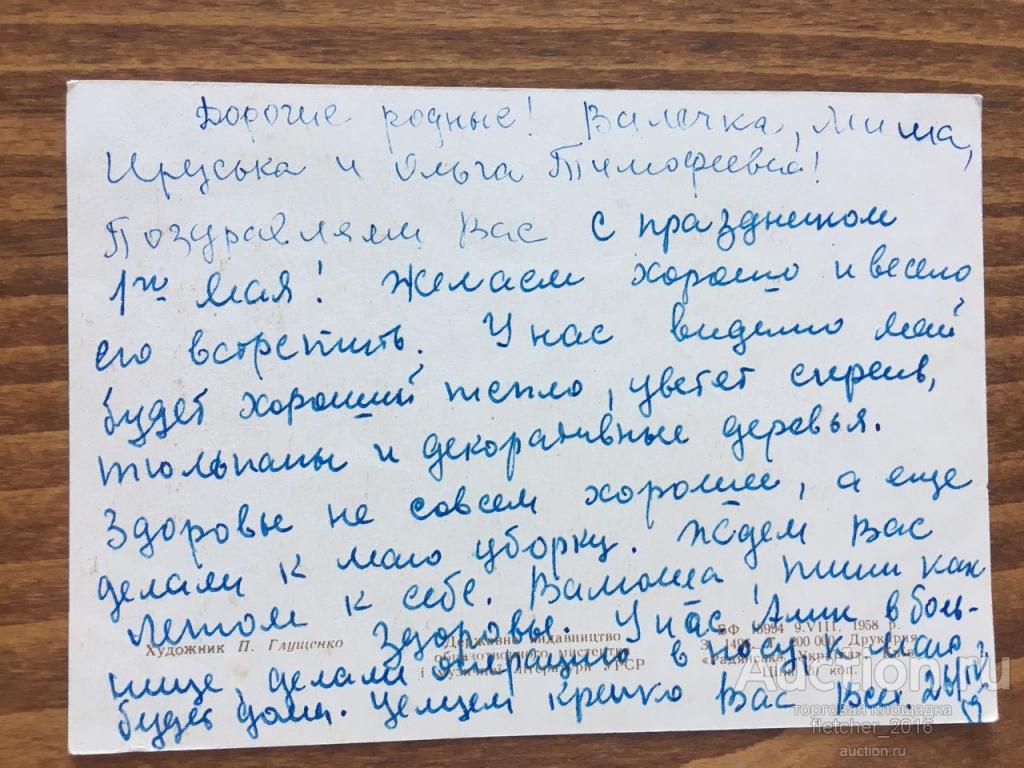 Дорогие родные! Валичка, Миша,
Ируська и Ольга Тимофеевна!
Поздравляем Вас с праздником
1го Мая! Желаем хорошо и весело
его встретить. У нас видимо май
будет хороший тепло, цветет сирень,
тюльпаны и декоративные деревья.
Здоровье не совсем хорошее, а еще
делали к маю уборку. Ждем Вас
летом к себе. пиши как
здоровье. У нас Алик в боль-
нице, делали операцию в носу, к маю
будет дома. Целуем крепко Вас всех. 24/IV
Художник П. Глущенко
Державне видавництво
образотворчого мистецтва
і музичної літератури УРСР
БФ 18994 9.VIII. 1958 р.
200 000 Друкарня
«Радянська Україна»
Ціна коп.
Auction.ru
торговая площадка
fletcher_2016
auction.ru